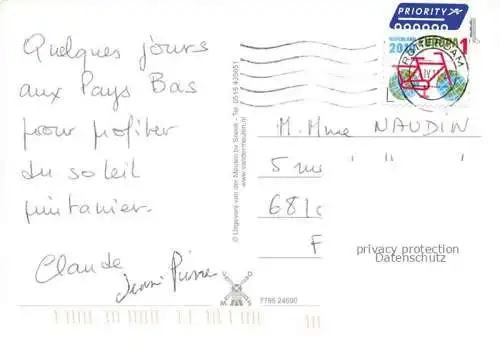 Quelques jours
aux Pays Bas
pour profiter
du soleil
printanier.
Claude
Jean Pierre
© Uitgeverij van der Meulen bv Sneek - Tel. 0515 430651
www.vandermeulen.nl
7795 24690
PRIORITY
NEDERLAND
1
M. Mme NAUDIN
5 rue
6810
F
privacy protection
Datenschutz